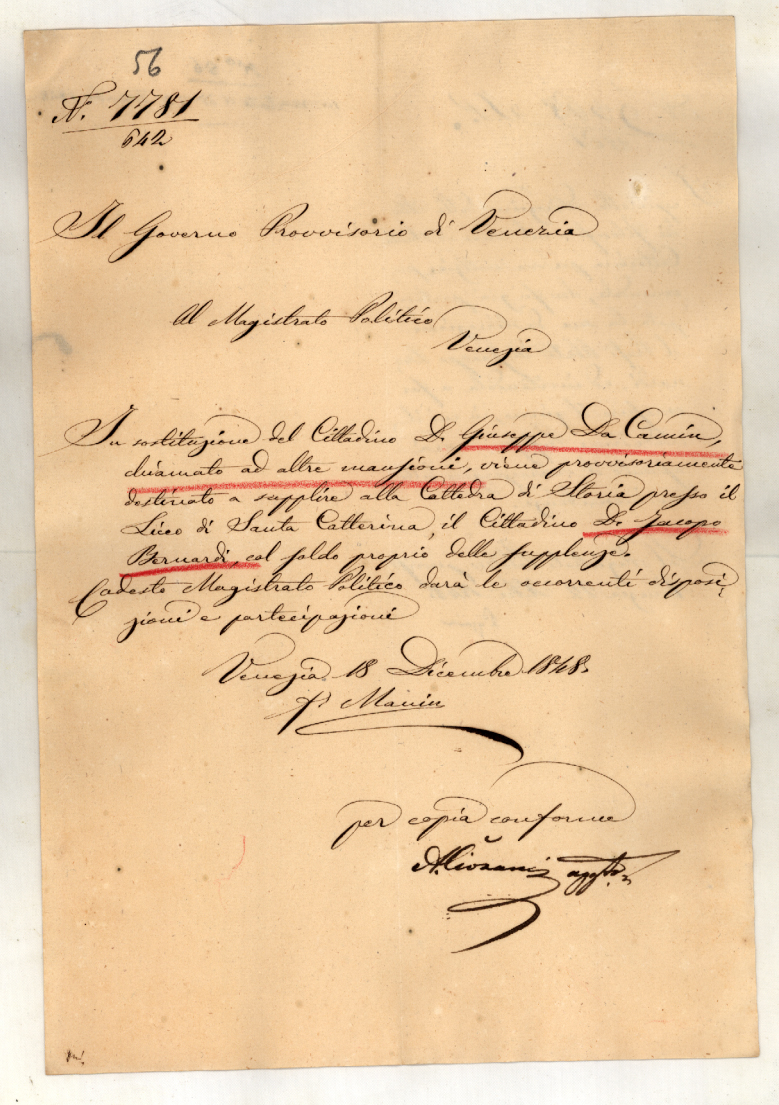 56
N. 7781
642
Il Governo Provvisorio di Venezia
Al Magistrato Politico
Venezia
In sostituzione del Cittadino D. Giuseppe Da Camin,
chiamato ad altre mansioni, viene provvisoriamente
destinato a supplire alla Cattedra di Storia presso il
Liceo di Santa Catterina, il Cittadino D. Jacopo
Bernardi, col soldo proprio delle supplenze.
Codesto Magistrato Politico darà le occorrenti disposi,
zioni e partecipazioni
Venezia 18 Dicembre 1848.
f° Manin
per copia conforme